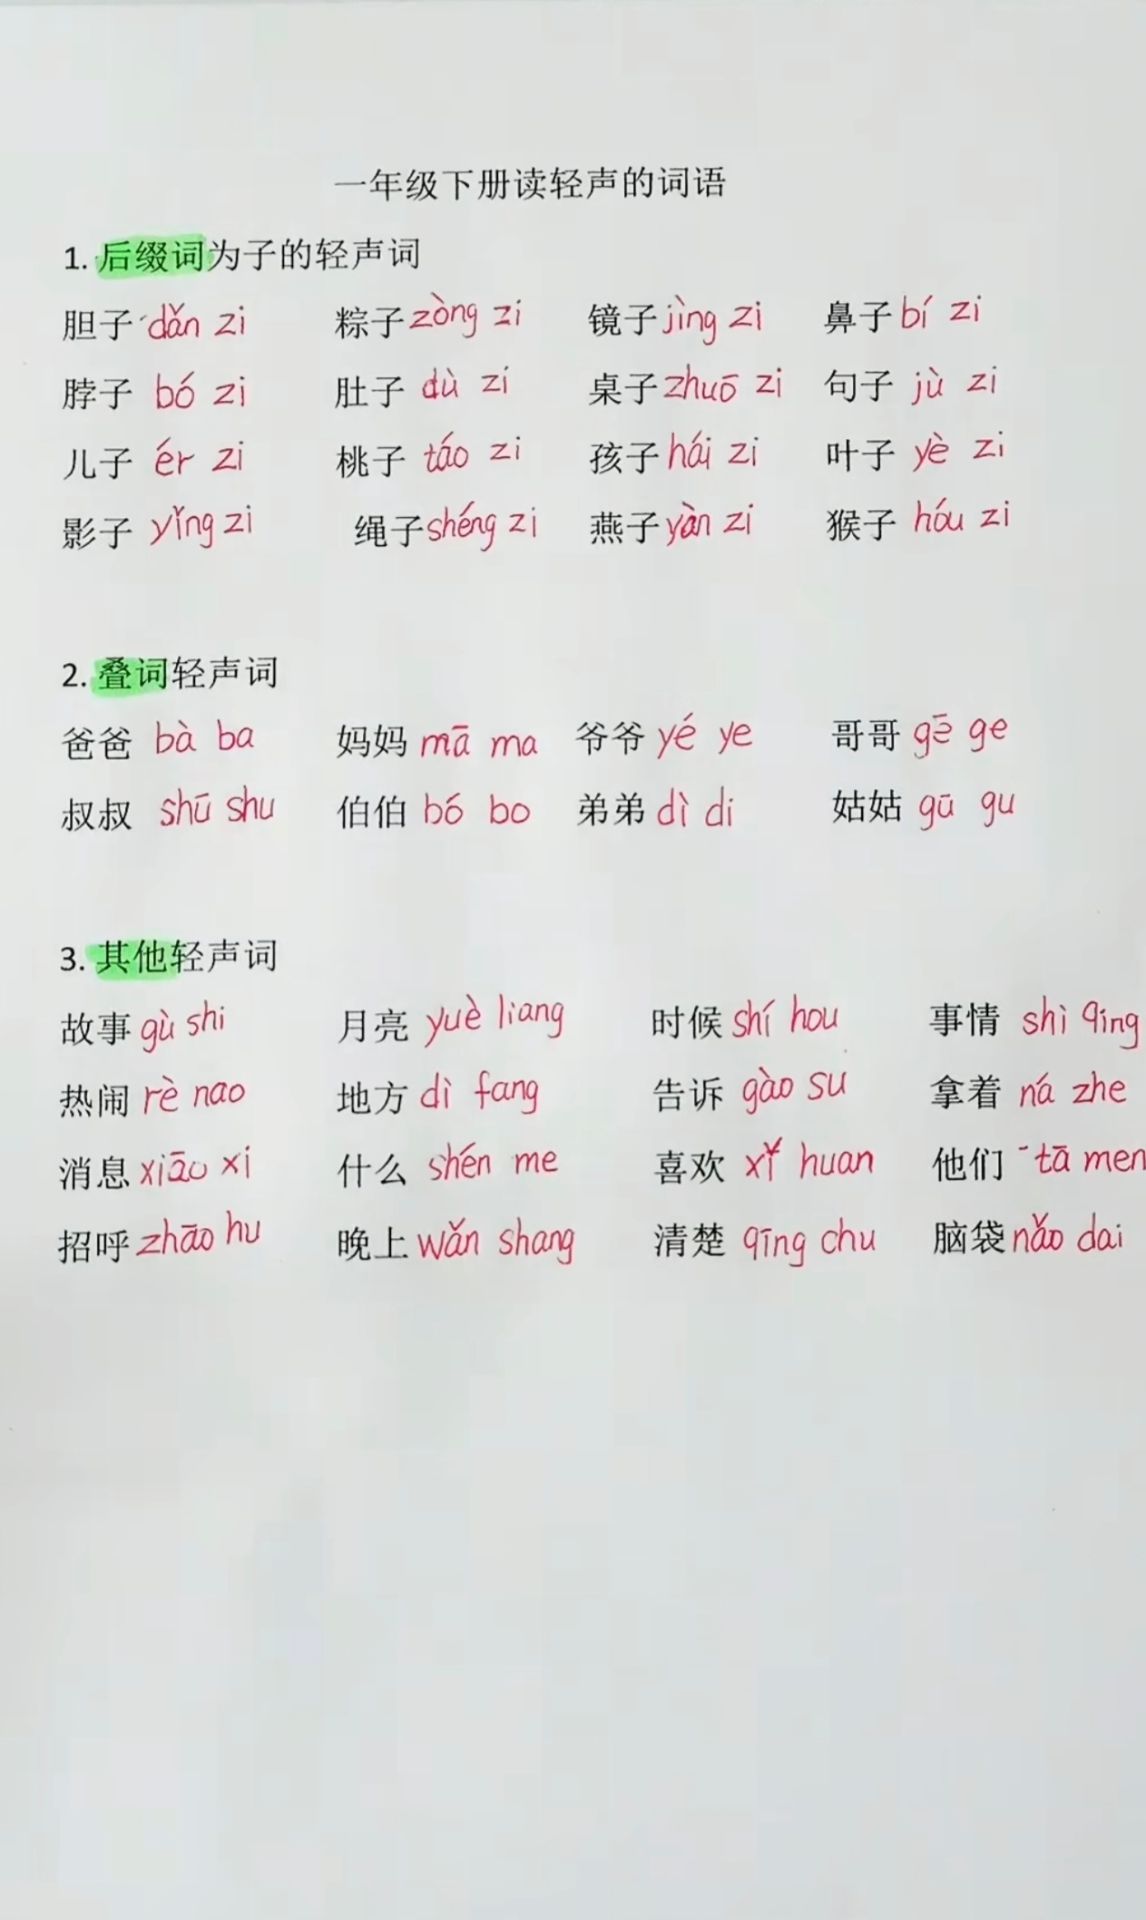 一年级下册读轻声的词语
1. 后缀词为子的轻声词
胆子 dǎn zi 粽子 zòng zi 镜子 jìng zi 鼻子 bí zi
脖子 bó zi 肚子 dù zi 桌子 zhuō zi 句子 jù zi
儿子 ér zi 桃子 táo zi 孩子 hái zi 叶子 yè zi
影子 yǐng zi 绳子 shéng zi 燕子 yàn zi 猴子 hóu zi
2. 叠词轻声词
爸爸 bà ba 妈妈 mā ma 爷爷 yé ye 哥哥 gē ge
叔叔 shū shu 伯伯 bó bo 弟弟 dì di 姑姑 gū gu
3. 其他轻声词
故事 gù shi 月亮 yuè liang 时候 shí hou 事情 shì qing
热闹 rè nao 地方 dì fang 告诉 gào su 拿着 ná zhe
消息 xiāo xi 什么 shén me 喜欢 xǐ huan 他们 tā men
招呼 zhāo hu 晚上 wǎn shang 清楚 qīng chu 脑袋 nǎo dai